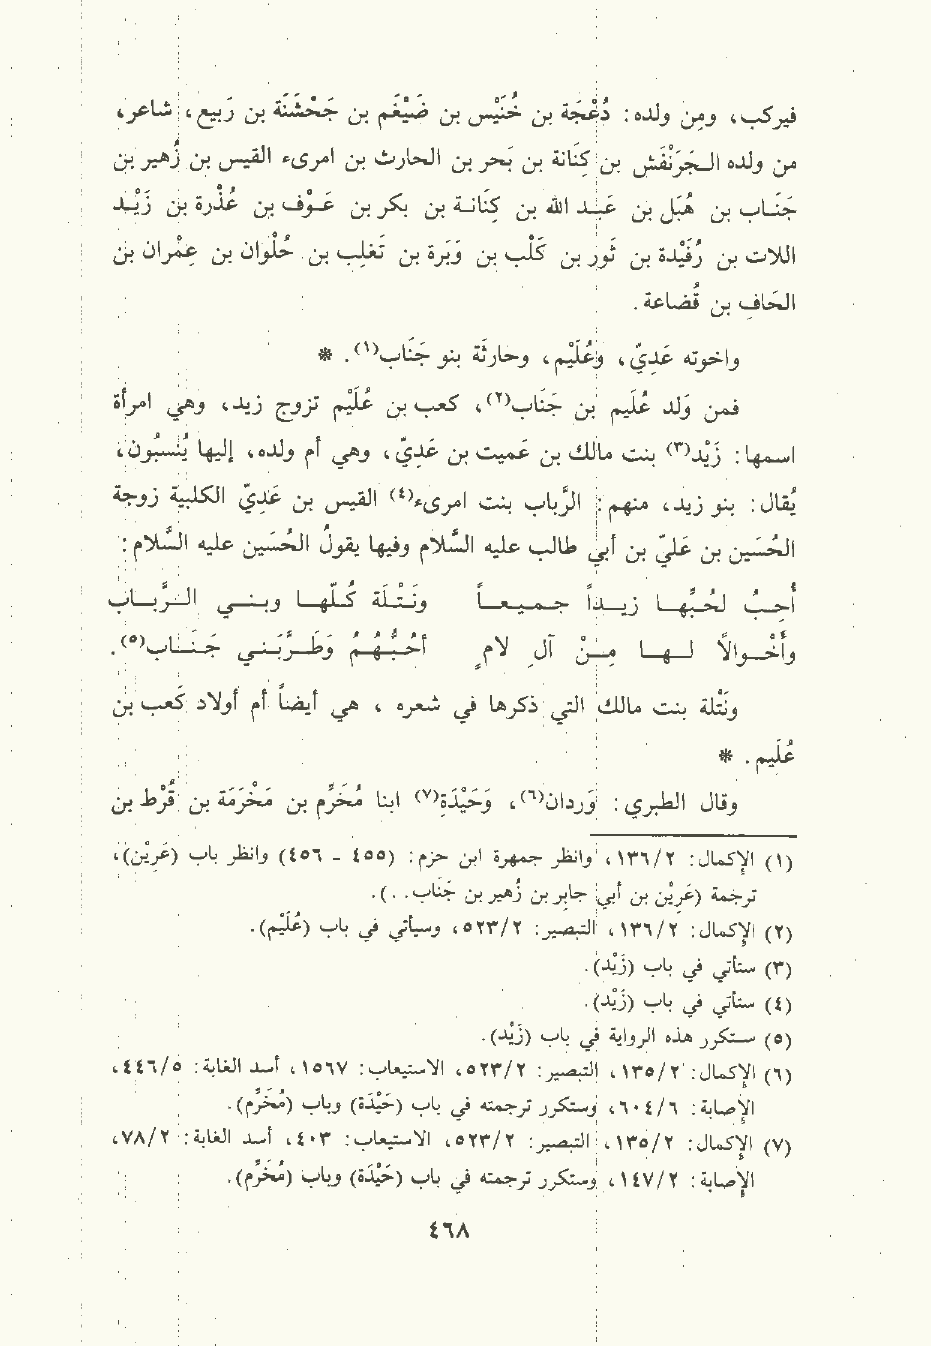 فيركب، ومن ولده: دُعْجَة بن خُنَيْس بن ضَيْغَم بن جَحْشَنَة بن رَبيع، شاعر،
من ولده الـجَرَنْفَش بن كِنانة بن بَحر بن الحارث بن امرىء القيس بن زُهير بن
جَنـاب بن هُبَل بن عَبـد الله بن كِنَانـة بن بكر بن عَـوْف بن عُذْرة بن زَيْـد
اللات بن رُفَيْدة بن ثَور بن كَلْب بن وَبَرة بن تَغلِب بن حُلْوان بن عِمْران بن
الحَاف بن قُضاعة.
واخوته عَدِيّ، وعُلَيْم، وحارثَة بنو جَنَاب(١). *
فمن وَلد عُلَيم بن جَنَاب(٢)، كعب بن عُلَيْم تزوج زيد، وهي امرأة
اسمها: زَيْد(٣) بنت مالك بن عَميت بن عَدِيّ، وهي أم ولده، إليها يُنْسبُون،
يُقال: بنو زيد، منهم: الرَّباب بنت امرىء(٤) القيس بن عَدِيّ الكلبية زوجة
الحُسَين بن عَليّ بن أبي طالب عليه السَّلام وفيها يقولُ الحُسَين عليه السَّلام:
أُحِـبُّ لحُبِّهـا زيـداً جـمـيـعـاً ونَـتْـلَة كُـلّهـا وبـنـي الـرَّبـاب
وأَخْـوالاً لـهـا مِـنْ آلِ لامٍ أحُـبُّـهُـمُ وَطَـرَّبَـنـي جَـنَـاب(٥).
ونَتْلة بنت مالك التي ذكرها في شعره، هي أيضاً أم أولاد كَعب بن
عُلَيم. *
وقال الطبري: وَرَدان(٦)، وحَيْدَة(٧) ابنا مُخَرِّم بن مَخْرَمَة بن قُرْط بن
(١) الإِكمال: ١٣٦/٢، وانظر جمهرة ابن حزم: (٤٥٥ - ٤٥٦) وانظر باب (عَرِيْن)،
ترجمة (عَرِيْن بن أبي جابر بن زُهير بن جَنَاب. .).
(٢) الإِكمال: ١٣٦/٢، التبصير: ٥٢٣/٢، وسيأتي في باب (عُلَيْم).
(٣) ستأتي في باب (زَيْد).
(٤) ستأتي في باب (زَيْد).
(٥) ستكرر هذه الرواية في باب (زَيْد).
(٦) الإِكمال: ١٣٥/٢، التبصير: ٥٢٣/٢، الاستيعاب: ١٥٦٧، أسد الغابة: ٤٤٦/٥،
الإِصابة: ٦٠٤/٦، وستكرر ترجمته في باب (حَيْدَة) وباب (مُخَرِّم).
(٧) الإِكمال: ١٣٥/٢، التبصير: ٥٢٣/٢، الاستيعاب: ٤٠٣، أسد الغابة: ٧٨/٢،
الإِصابة: ١٤٧/٢، وستكرر ترجمته في باب (حَيْدَة) وباب (مُخَرِّم).
٤٦٨